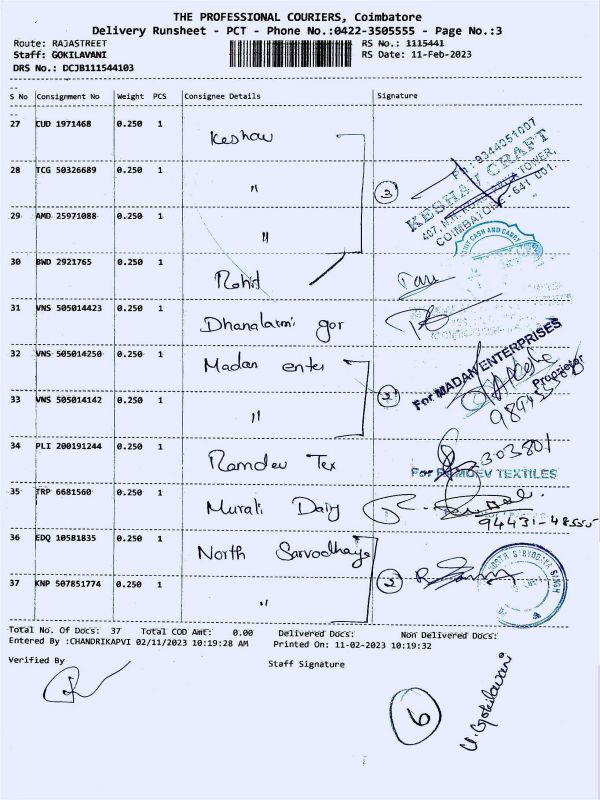 THE PROFESSIONAL COURIERS, Coimbatore
Delivery Runsheet - PCT - Phone No.:0422-3505555 - Page No.:3
Route: RAJASTREET
RS No.: 1115441
Staff: GOKILAVANI
RS Date: 11-Feb-2023
DRS No.: DCJB111544103
S No Consignment No Weight PCS Consignee Details Signature
27 CUD 1971468 0.250 1 Keshav
28 TCG 50326689 0.250 1 "
29 AMD 25971088 0.250 1 "
3
Ph : 9344051007
KESHAV CRAFT
COIMBATORE - 641 001.
CASH AND CARRY
30 BWD 2921765 0.250 1 Rohit
31 VNS 505014423 0.250 1 Dhanalaxmi gor
32 VNS 505014250 0.250 1 Madan enter
33 VNS 505014142 0.250 1 "
2
For MADAN ENTERPRISES
Proprietor
34 PLI 200191244 0.250 1 Ramdev Tex
303801
For RAMDEV TEXTILES
35 TRP 6681560 0.250 1 Murali Dairy
94431-48555
36 EDQ 10581835 0.250 1 North Sarvodhaya
37 KNP 507851774 0.250 1 "
Total No. Of Docs: 37 Total COD Amt: 0.00 Delivered Docs: Non Delivered Docs:
Entered By :CHANDRIKAPVI 02/11/2023 10:19:28 AM Printed On: 11-02-2023 10:19:32
Verified By
Staff Signature
6
V. Gokilavani